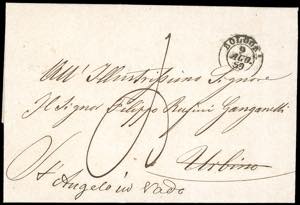 BOLOGNA
9
AGO.
59
All' Illustrissimo Signore
Il Signor Filippo Rufini Ganganelli
Urbino
S. Angelo in Vado